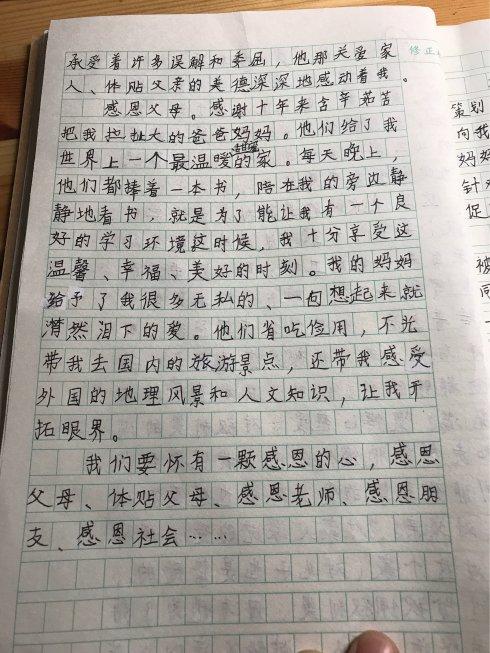 承受着许多误解和委屈，他那关爱家
人、体贴父亲的美德深深地感动着我。
感恩父母。感谢十年来含辛茹苦
把我拉扯大的爸爸妈妈。他们给了我
世界上一个最温暖的家。每天晚上，
他们都捧着一本书，陪在我的旁边静
静地看书，就是为了能让我有一个良
好的学习环境。这时候，我十分享受这
温馨、幸福、美好的时刻。我的妈妈
给予了我很多无私的、一向想起来就
潸然泪下的爱。他们省吃俭用，不光
带我去国内的旅游景点，还带我感受
外国的地理风景和人文知识，让我开
拓眼界。
我们要怀有一颗感恩的心，感恩
父母、体贴父母、感恩老师、感恩朋
友、感恩社会……
修正
策划
向我
妈妈
针
促
被